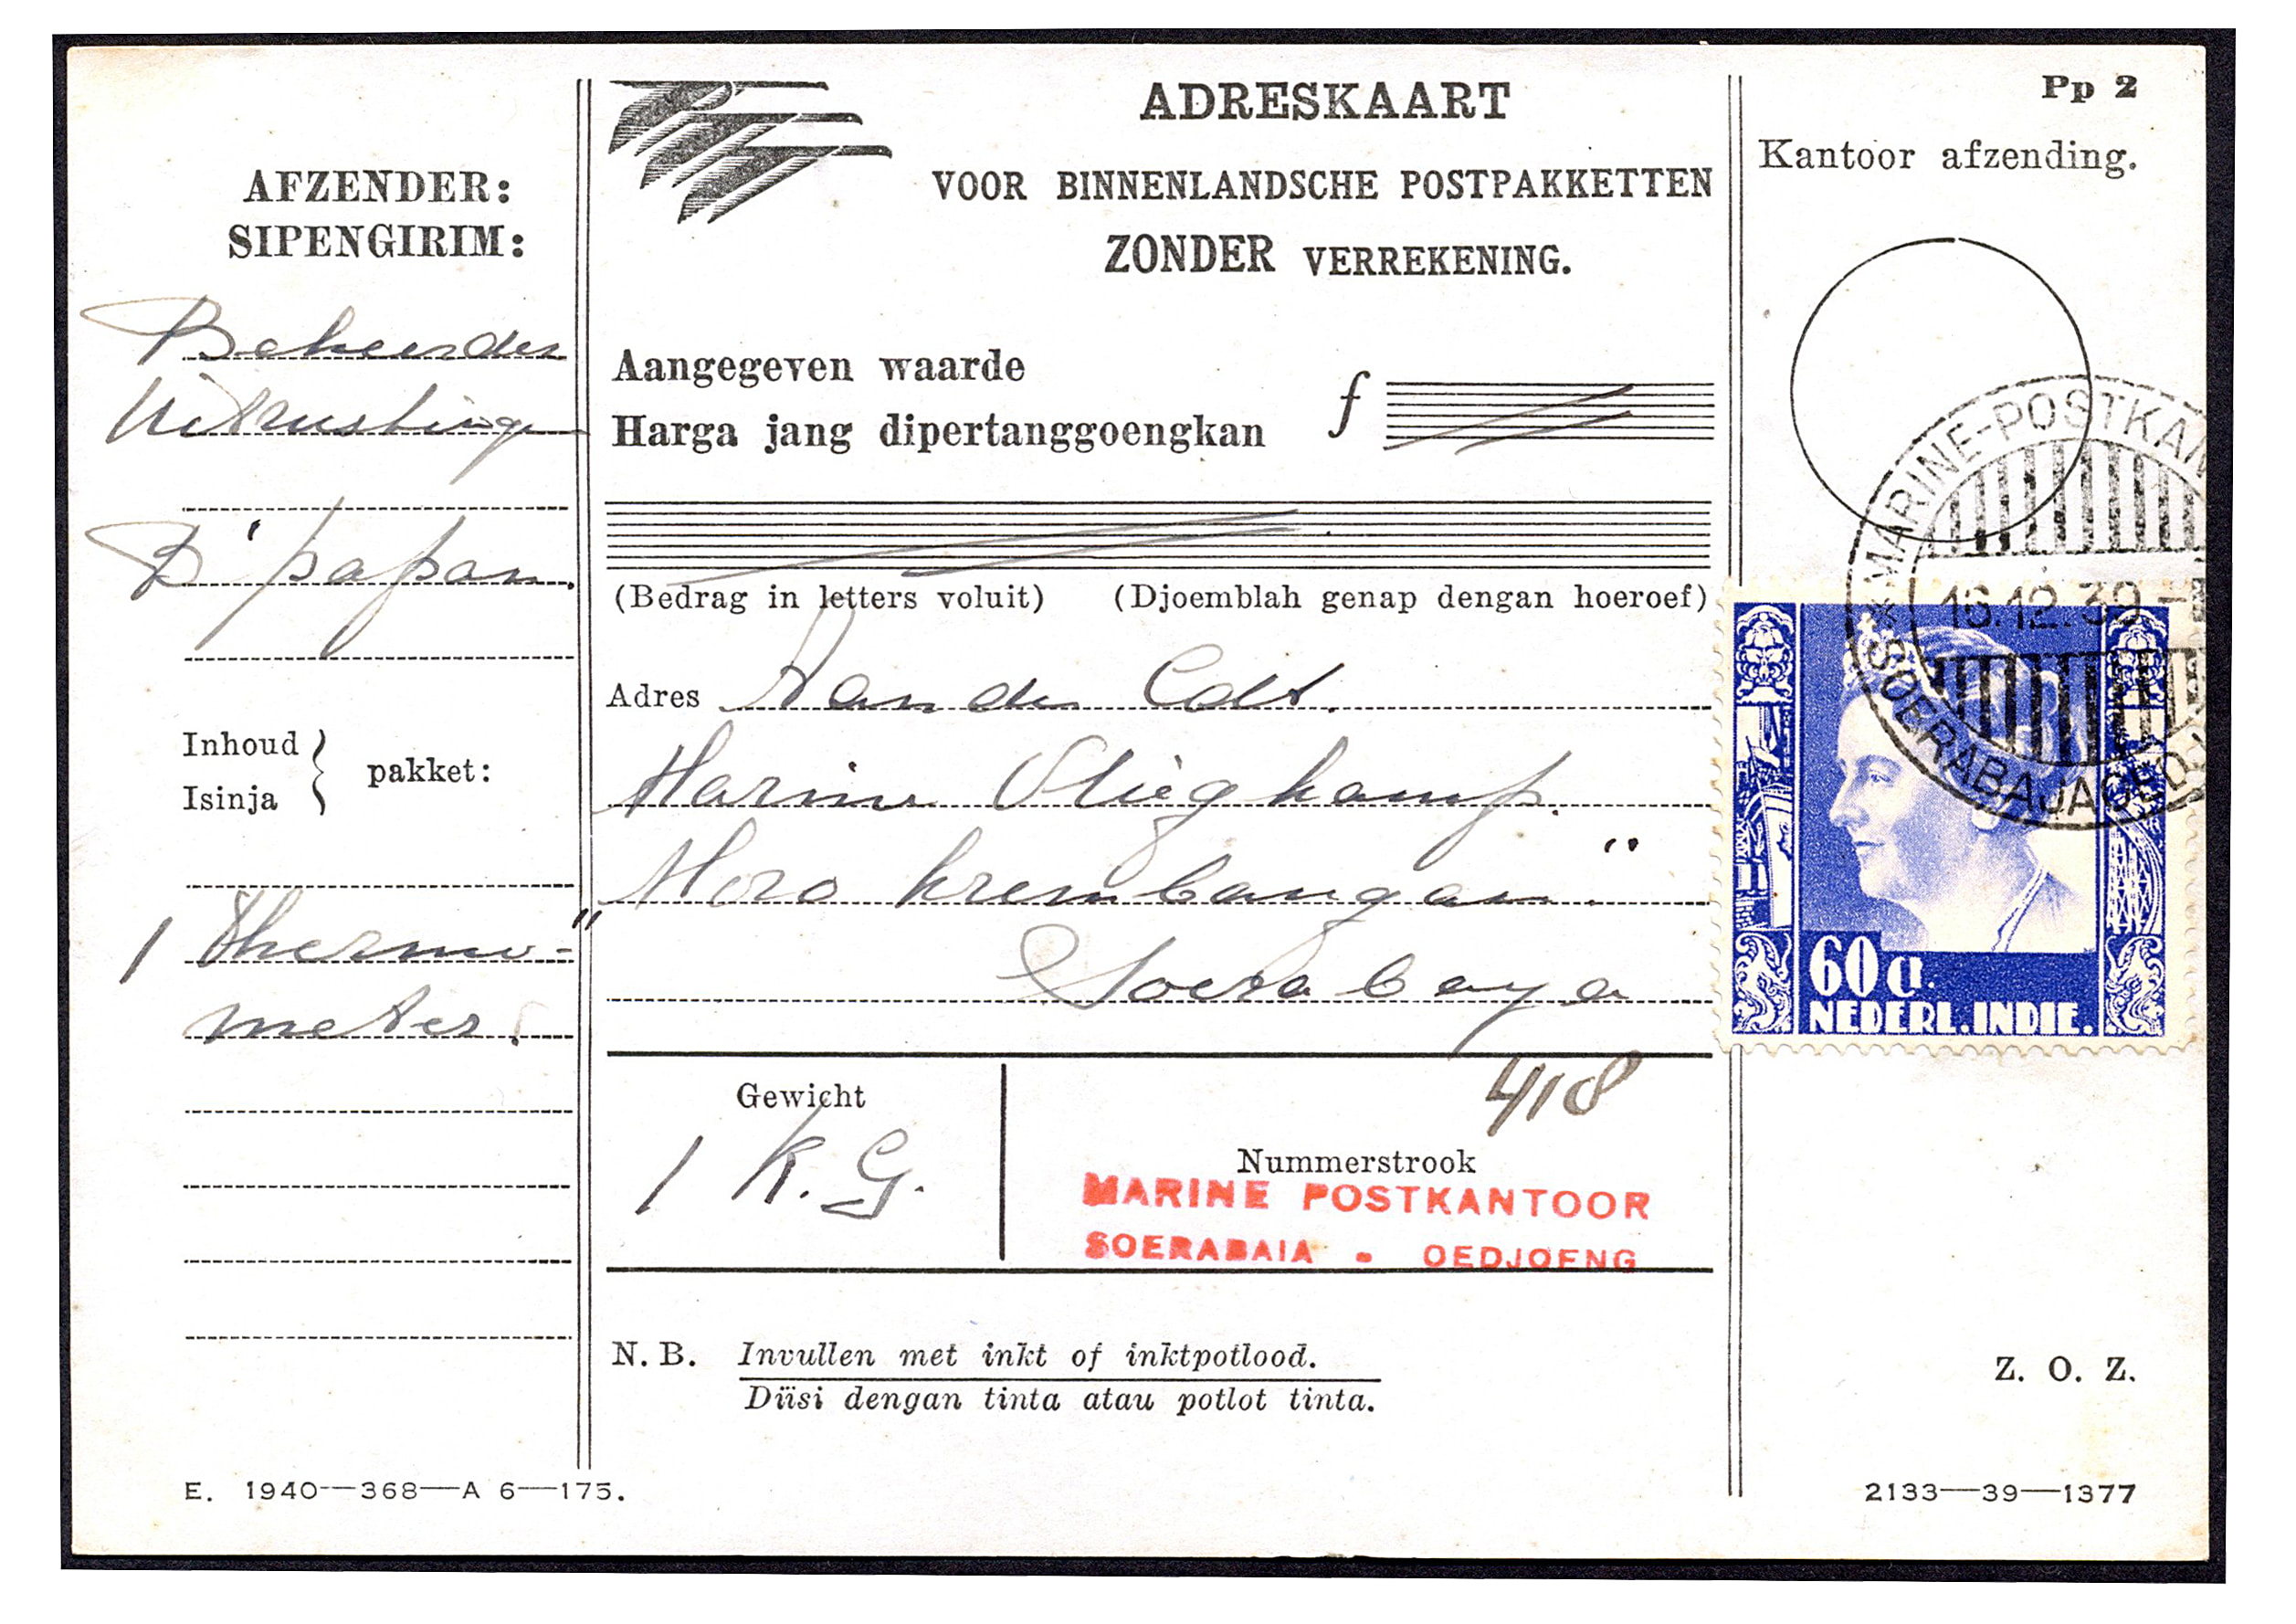 Pp 2
ADRESKAART
VOOR BINNENLANDSCHE POSTPAKKETTEN
ZONDER VERREKENING.
Kantoor afzending.
AFZENDER:
SIPENGIRIM:
Beheerder
Uitrustinge
B'papan.
Inhoud
Isinja
pakket:
1 Thermo-
meter.
Aangegeven waarde
Harga jang dipertanggoengkan
f
(Bedrag in letters voluit) (Djoemblah genap dengan hoeroef)
Adres Aan den Cdt.
Marine Vliegkamp.
"Moro krembangan"
Soerabaya
Gewicht
1 K.G.
418
Nummerstrook
MARINE POSTKANTOOR
SOERABAIA - OEDJOENG
N.B. Invullen met inkt of inktpotlood.
Diisi dengan tinta atau potlot tinta.
MARINE-POSTKAN
16.12.39-
SOERABAJA
60 ct.
NEDERL.INDIE.
Z. O. Z.
E. 1940—368—A 6—175.
2133—39—1377